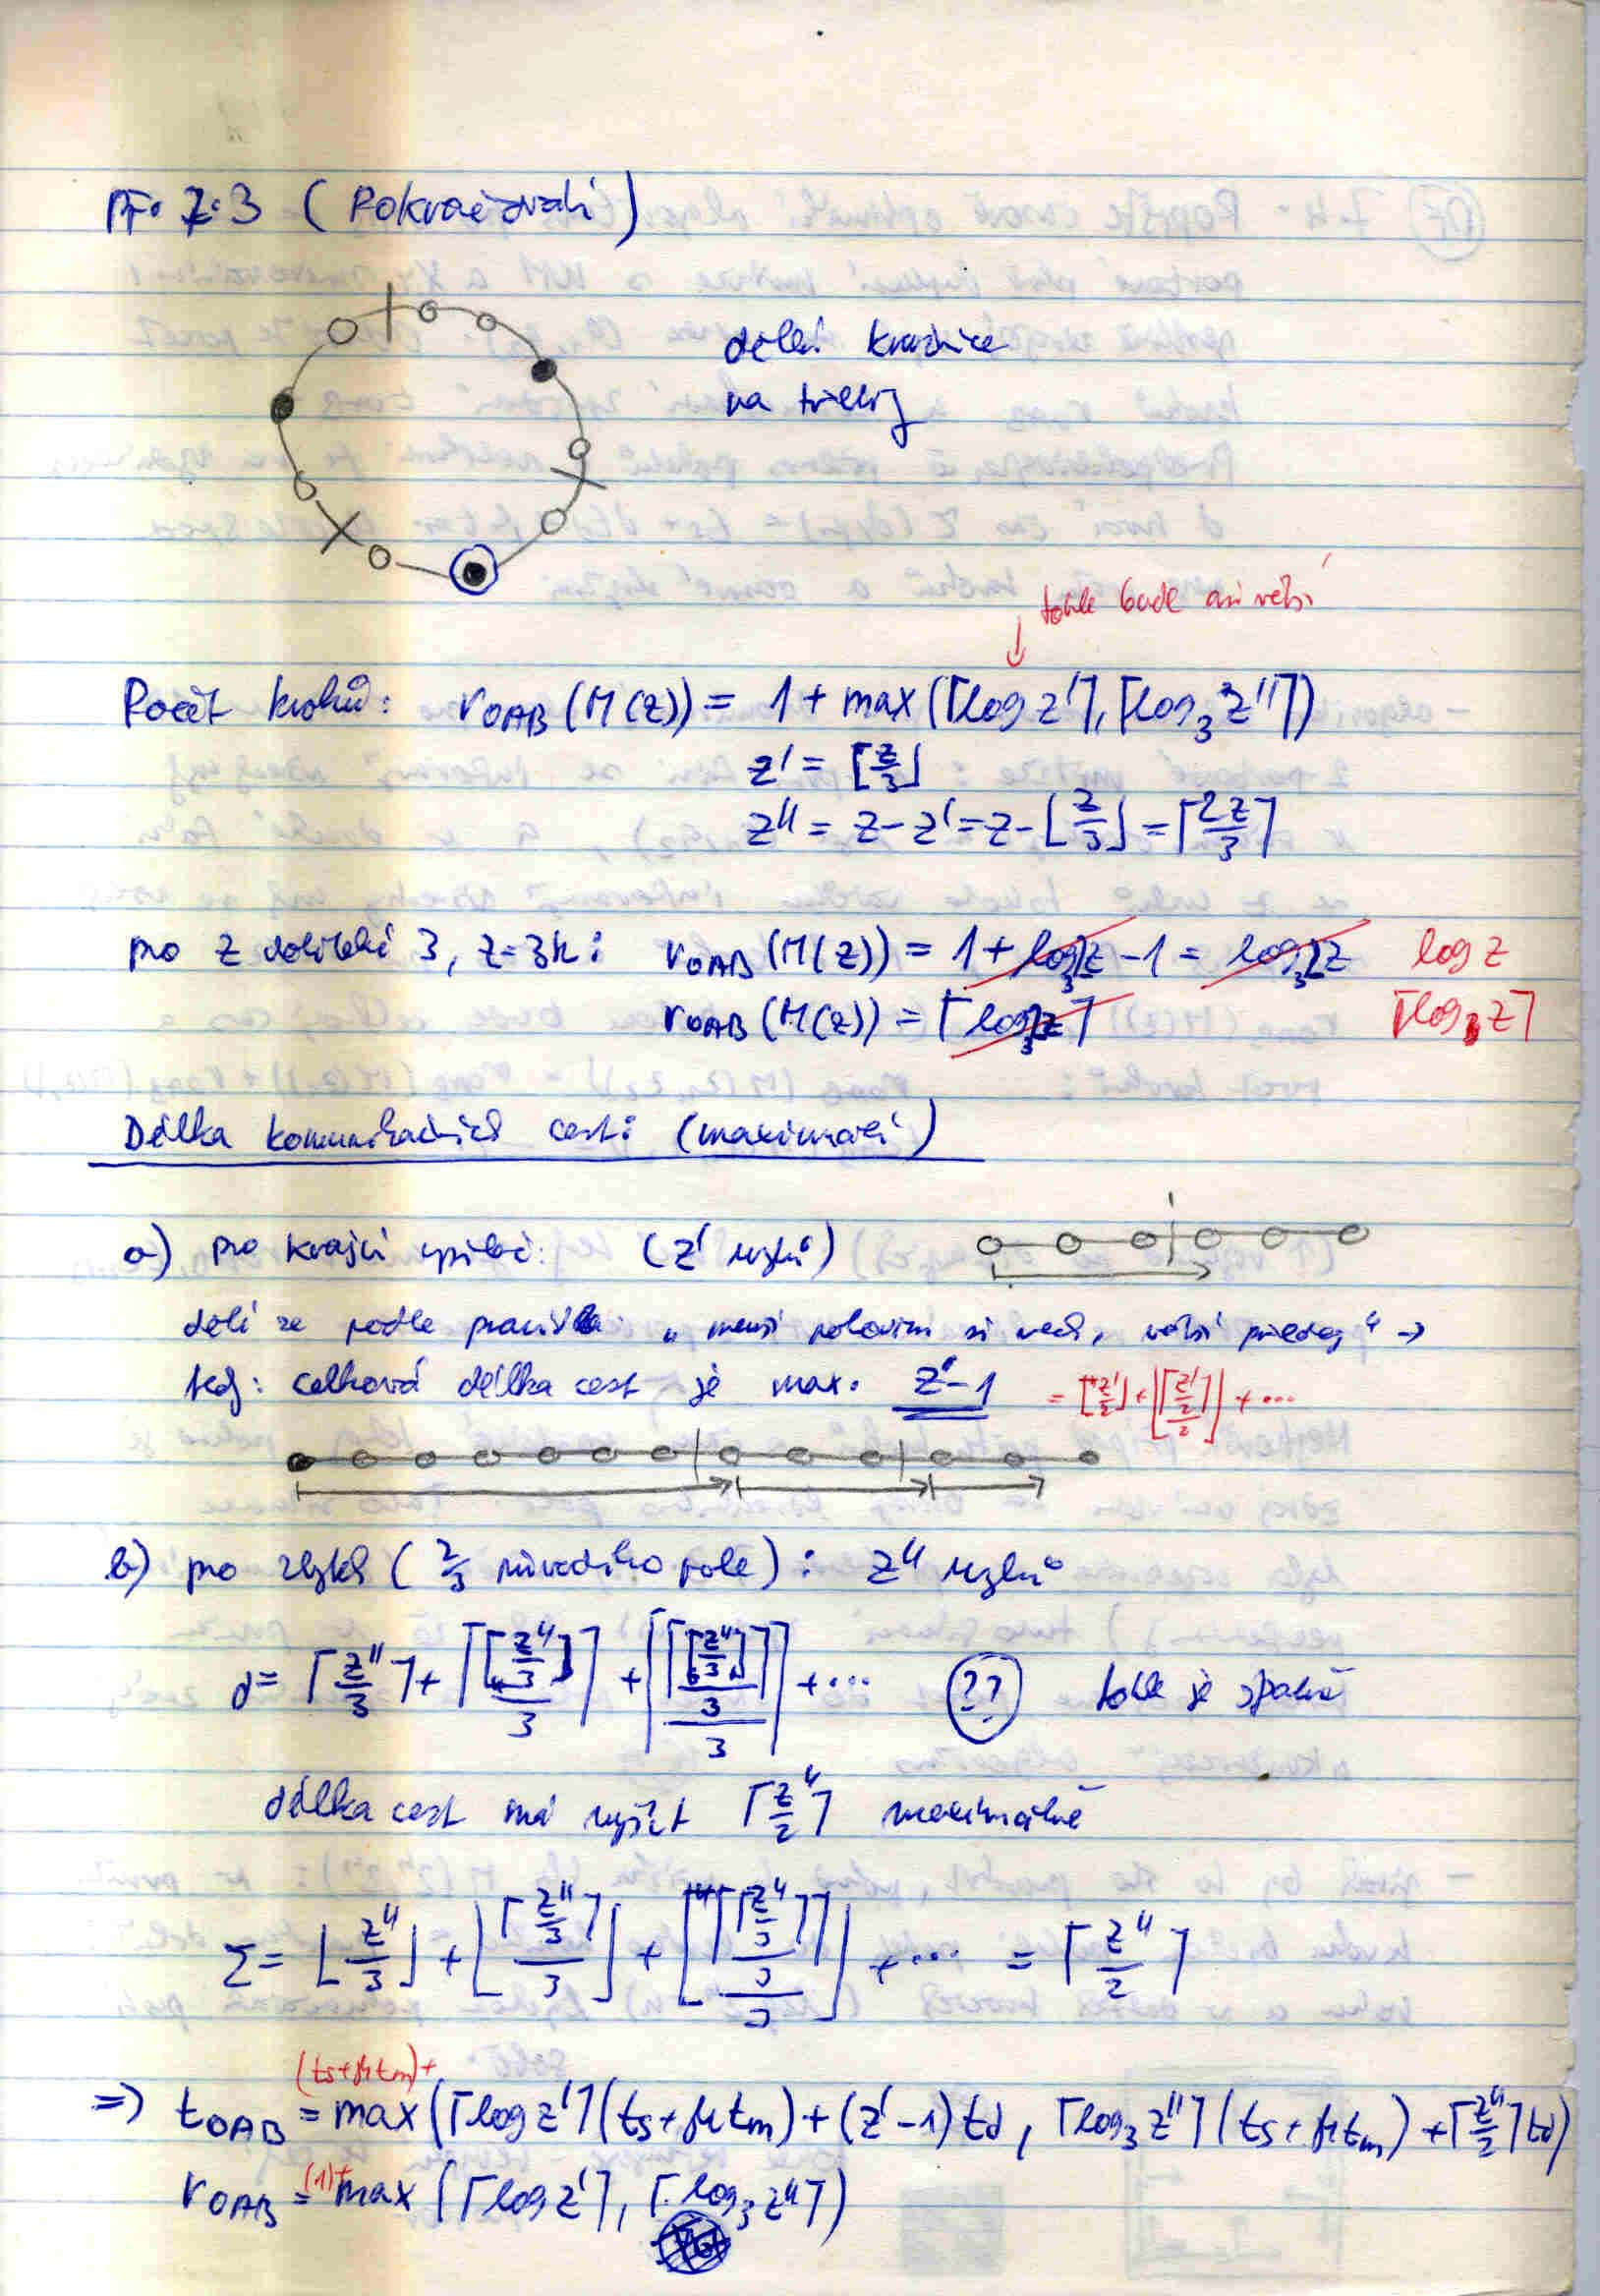 Př. 7.3 (Pokračování)
dělení kružnice
na třetiny
tohle bude asi větší
Počet kroků: rOAB (M(z)) = 1 + max (⌈log z'⌉, ⌈log₃ z''⌉)
z' = ⌊z/3⌋
z'' = z - z' = z - ⌊z/3⌋ = ⌈2z/3⌉
pro z dělitelné 3, z=3k: rOAB (M(z)) = 1 + log₃z - 1 = log₃z log z
rOAB (M(z)) = ⌈log₃z⌉ ⌈log₃ z⌉
Délka komunikačních cest: (maximální)
a) pro krajní : (z' uzlů)
dělí se podle pravidla „menší polovinu si nech, větší předej" →
tedy: celková délka cest je max. z'-1 = ⌊z'/2⌋ + ⌊⌈z'/2⌉/2⌋ + ...
b) pro zbytek (2/3 původního pole): z'' uzlů
d = ⌈z''/3⌉ + ⌈⌈z''/3⌉/3⌉ + ⌈⌈⌈z''/3⌉/3⌉/3⌉ + ... ?? tohle je špatně
délka cest má vyjít ⌈z''/2⌉ maximálně
Σ = ⌊z''/3⌋ + ⌊⌈z''/3⌉/3⌋ + ⌊⌈⌈z''/3⌉/3⌉/3⌋ + ... = ⌈z''/2⌉
(ts+μtm)+
⇒ tOAB = max (⌈log z'⌉(ts+μtm) + (z'-1)td, ⌈log₃ z''⌉(ts+μtm) + ⌈z''/2⌉td)
rOAB = (1)+ max (⌈log z'⌉, ⌈log₃ z''⌉)